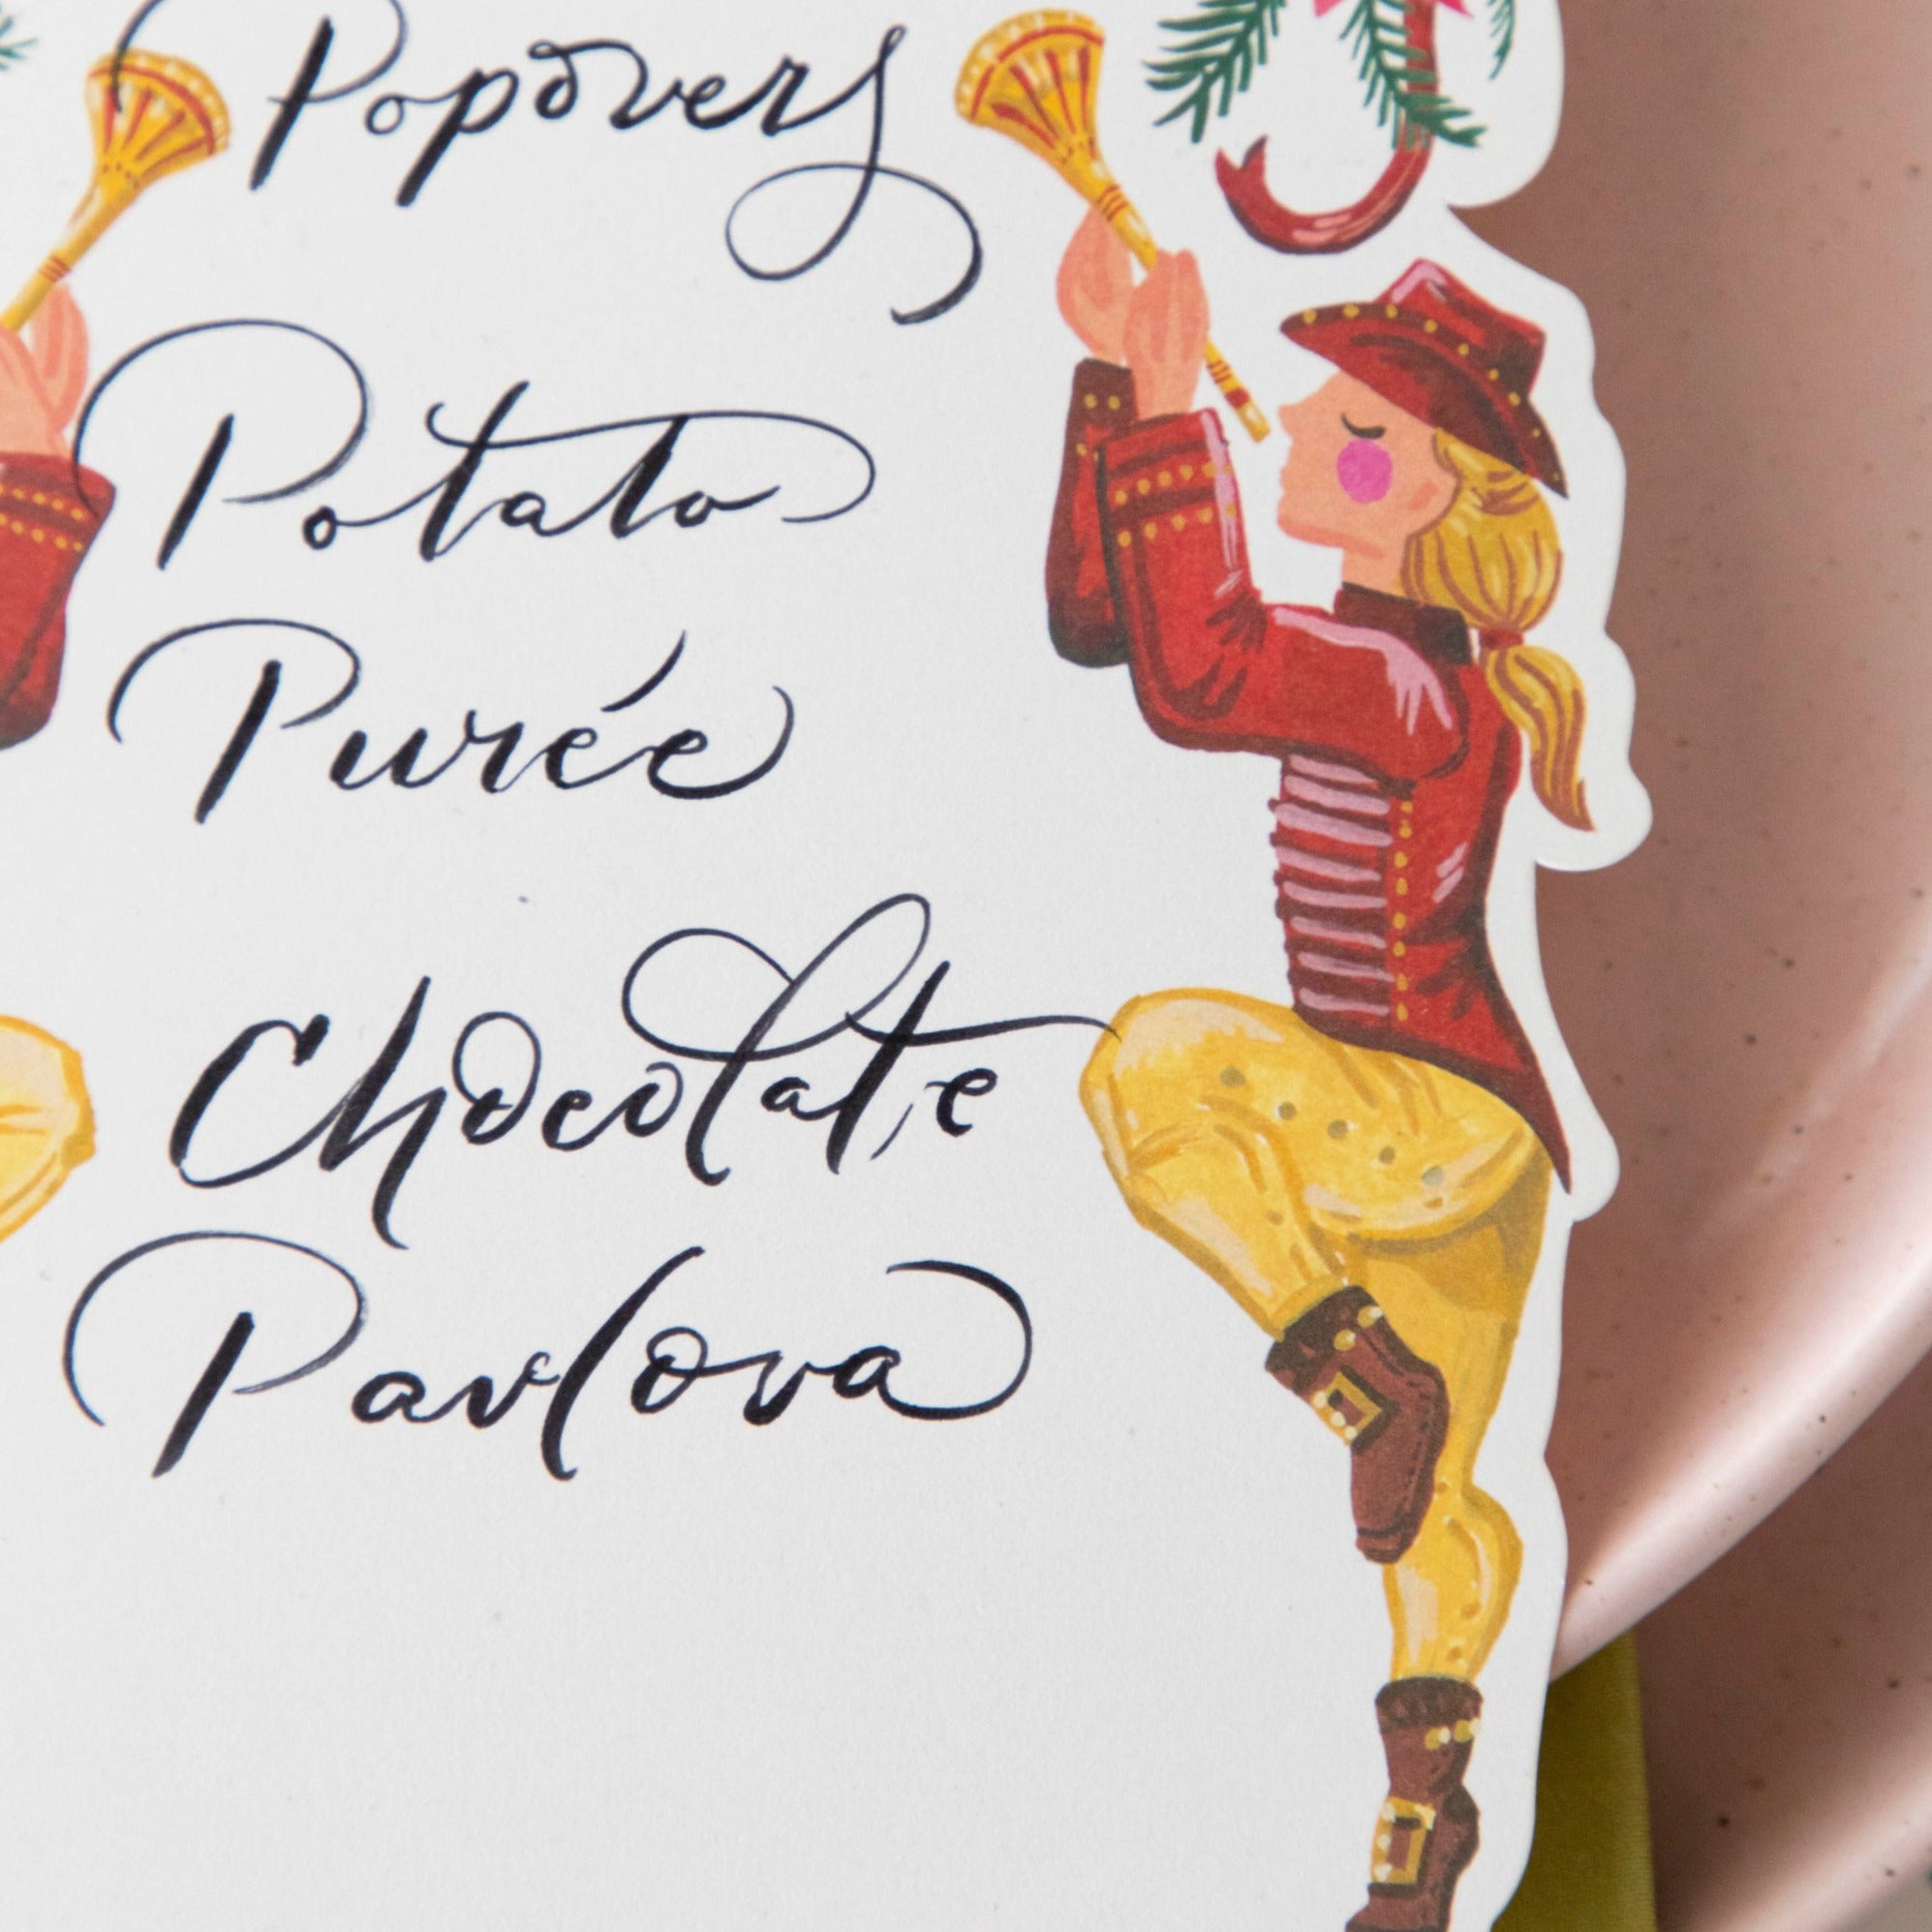 Popovers
Potato
Purée
Chocolate
Pavlova